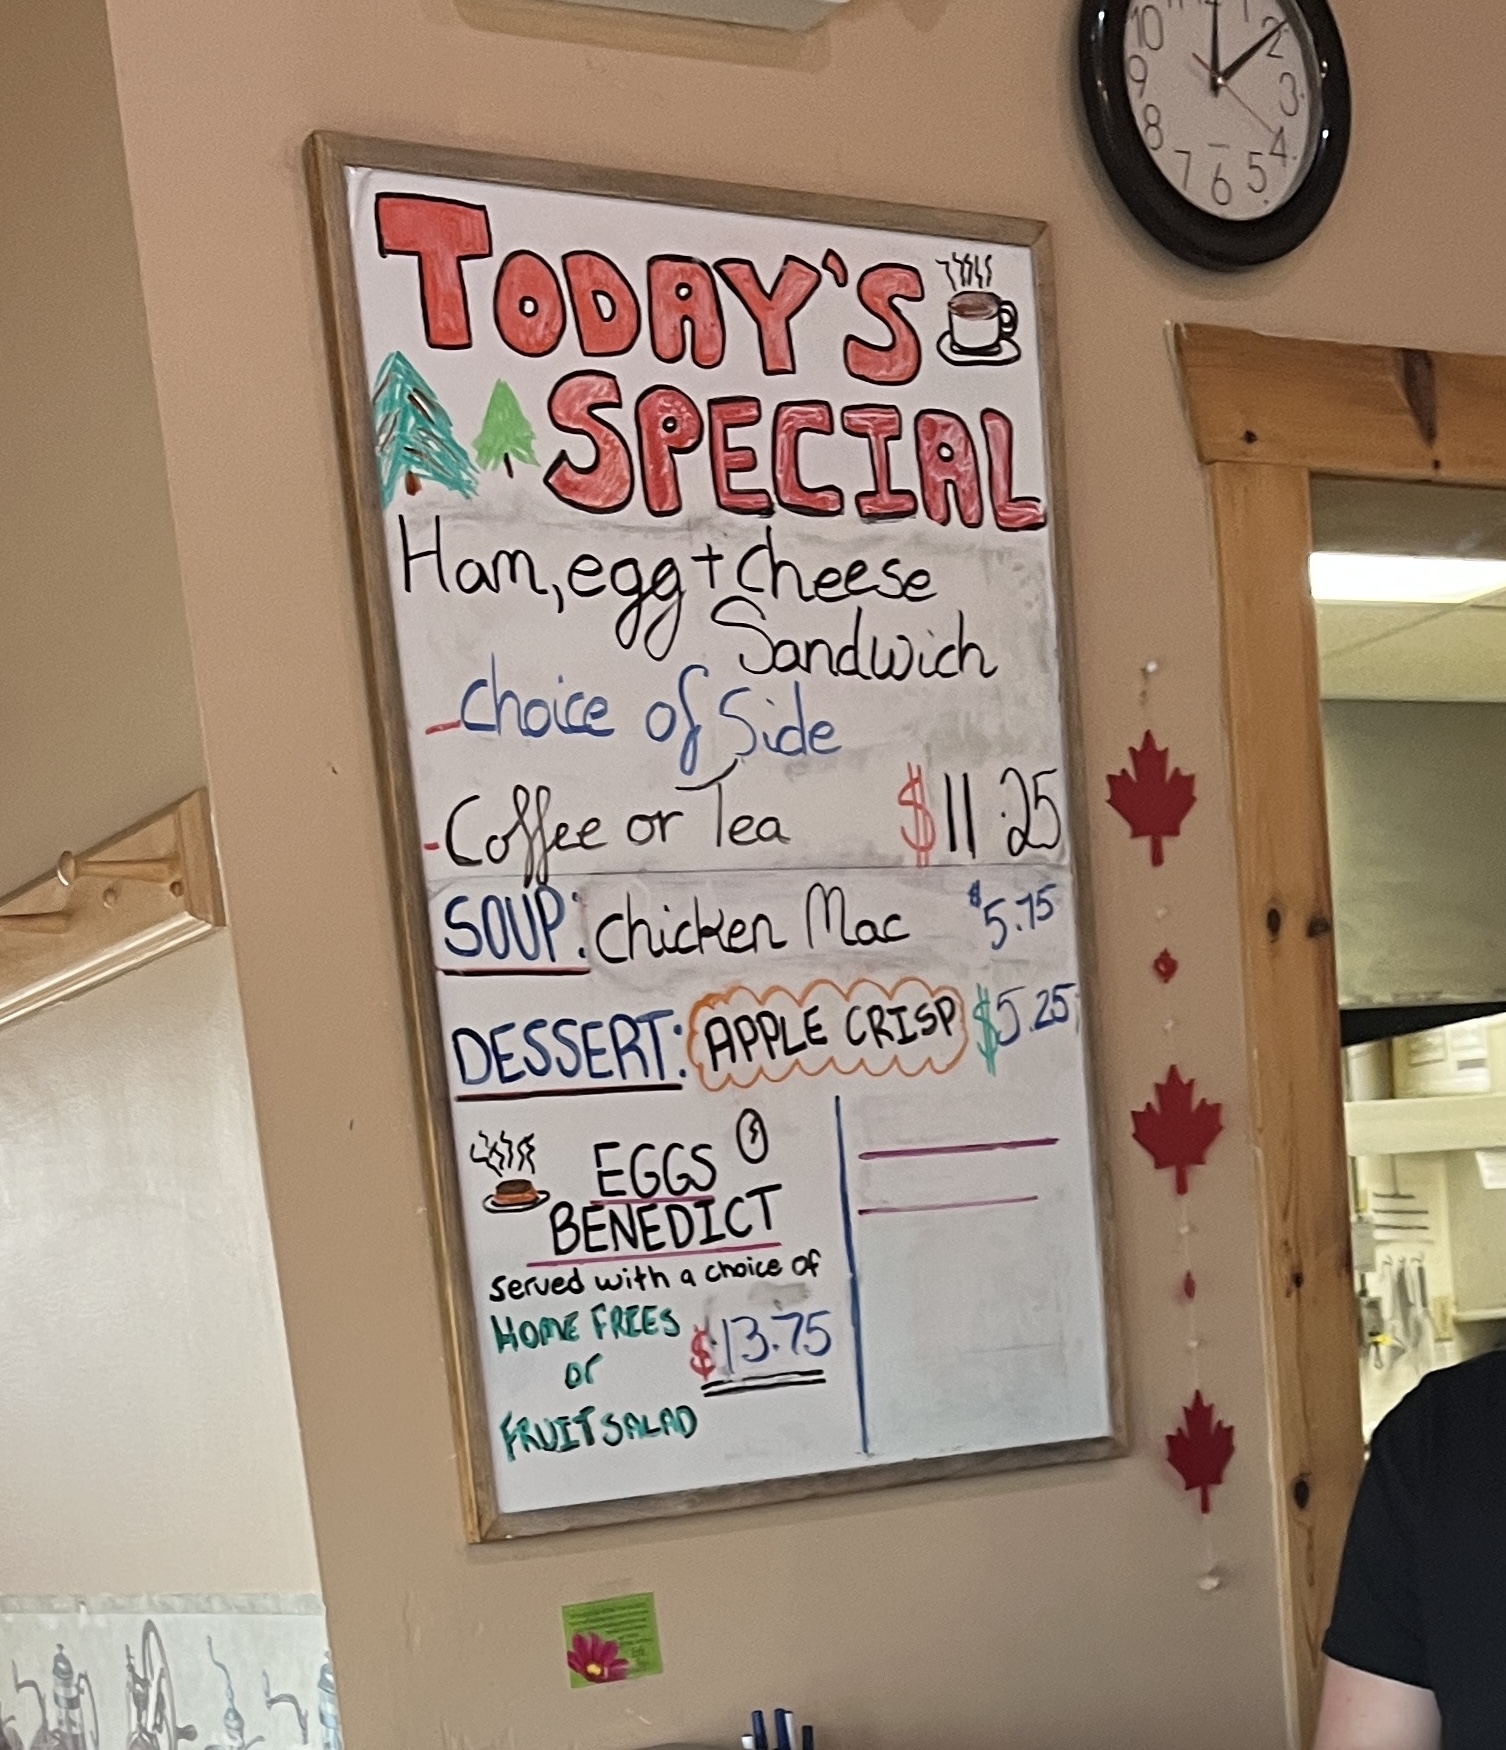 TODAY'S
SPECIAL
Ham, egg + cheese
Sandwich
- choice of Side
- Coffee or Tea $11.25
SOUP: chicken Mac $5.75
DESSERT: APPLE CRISP $5.25
EGGS
BENEDICT
served with a choice of
HOME FRIES
or
$13.75
FRUIT SALAD
10 1 2
9 3
8 4
7 6 5